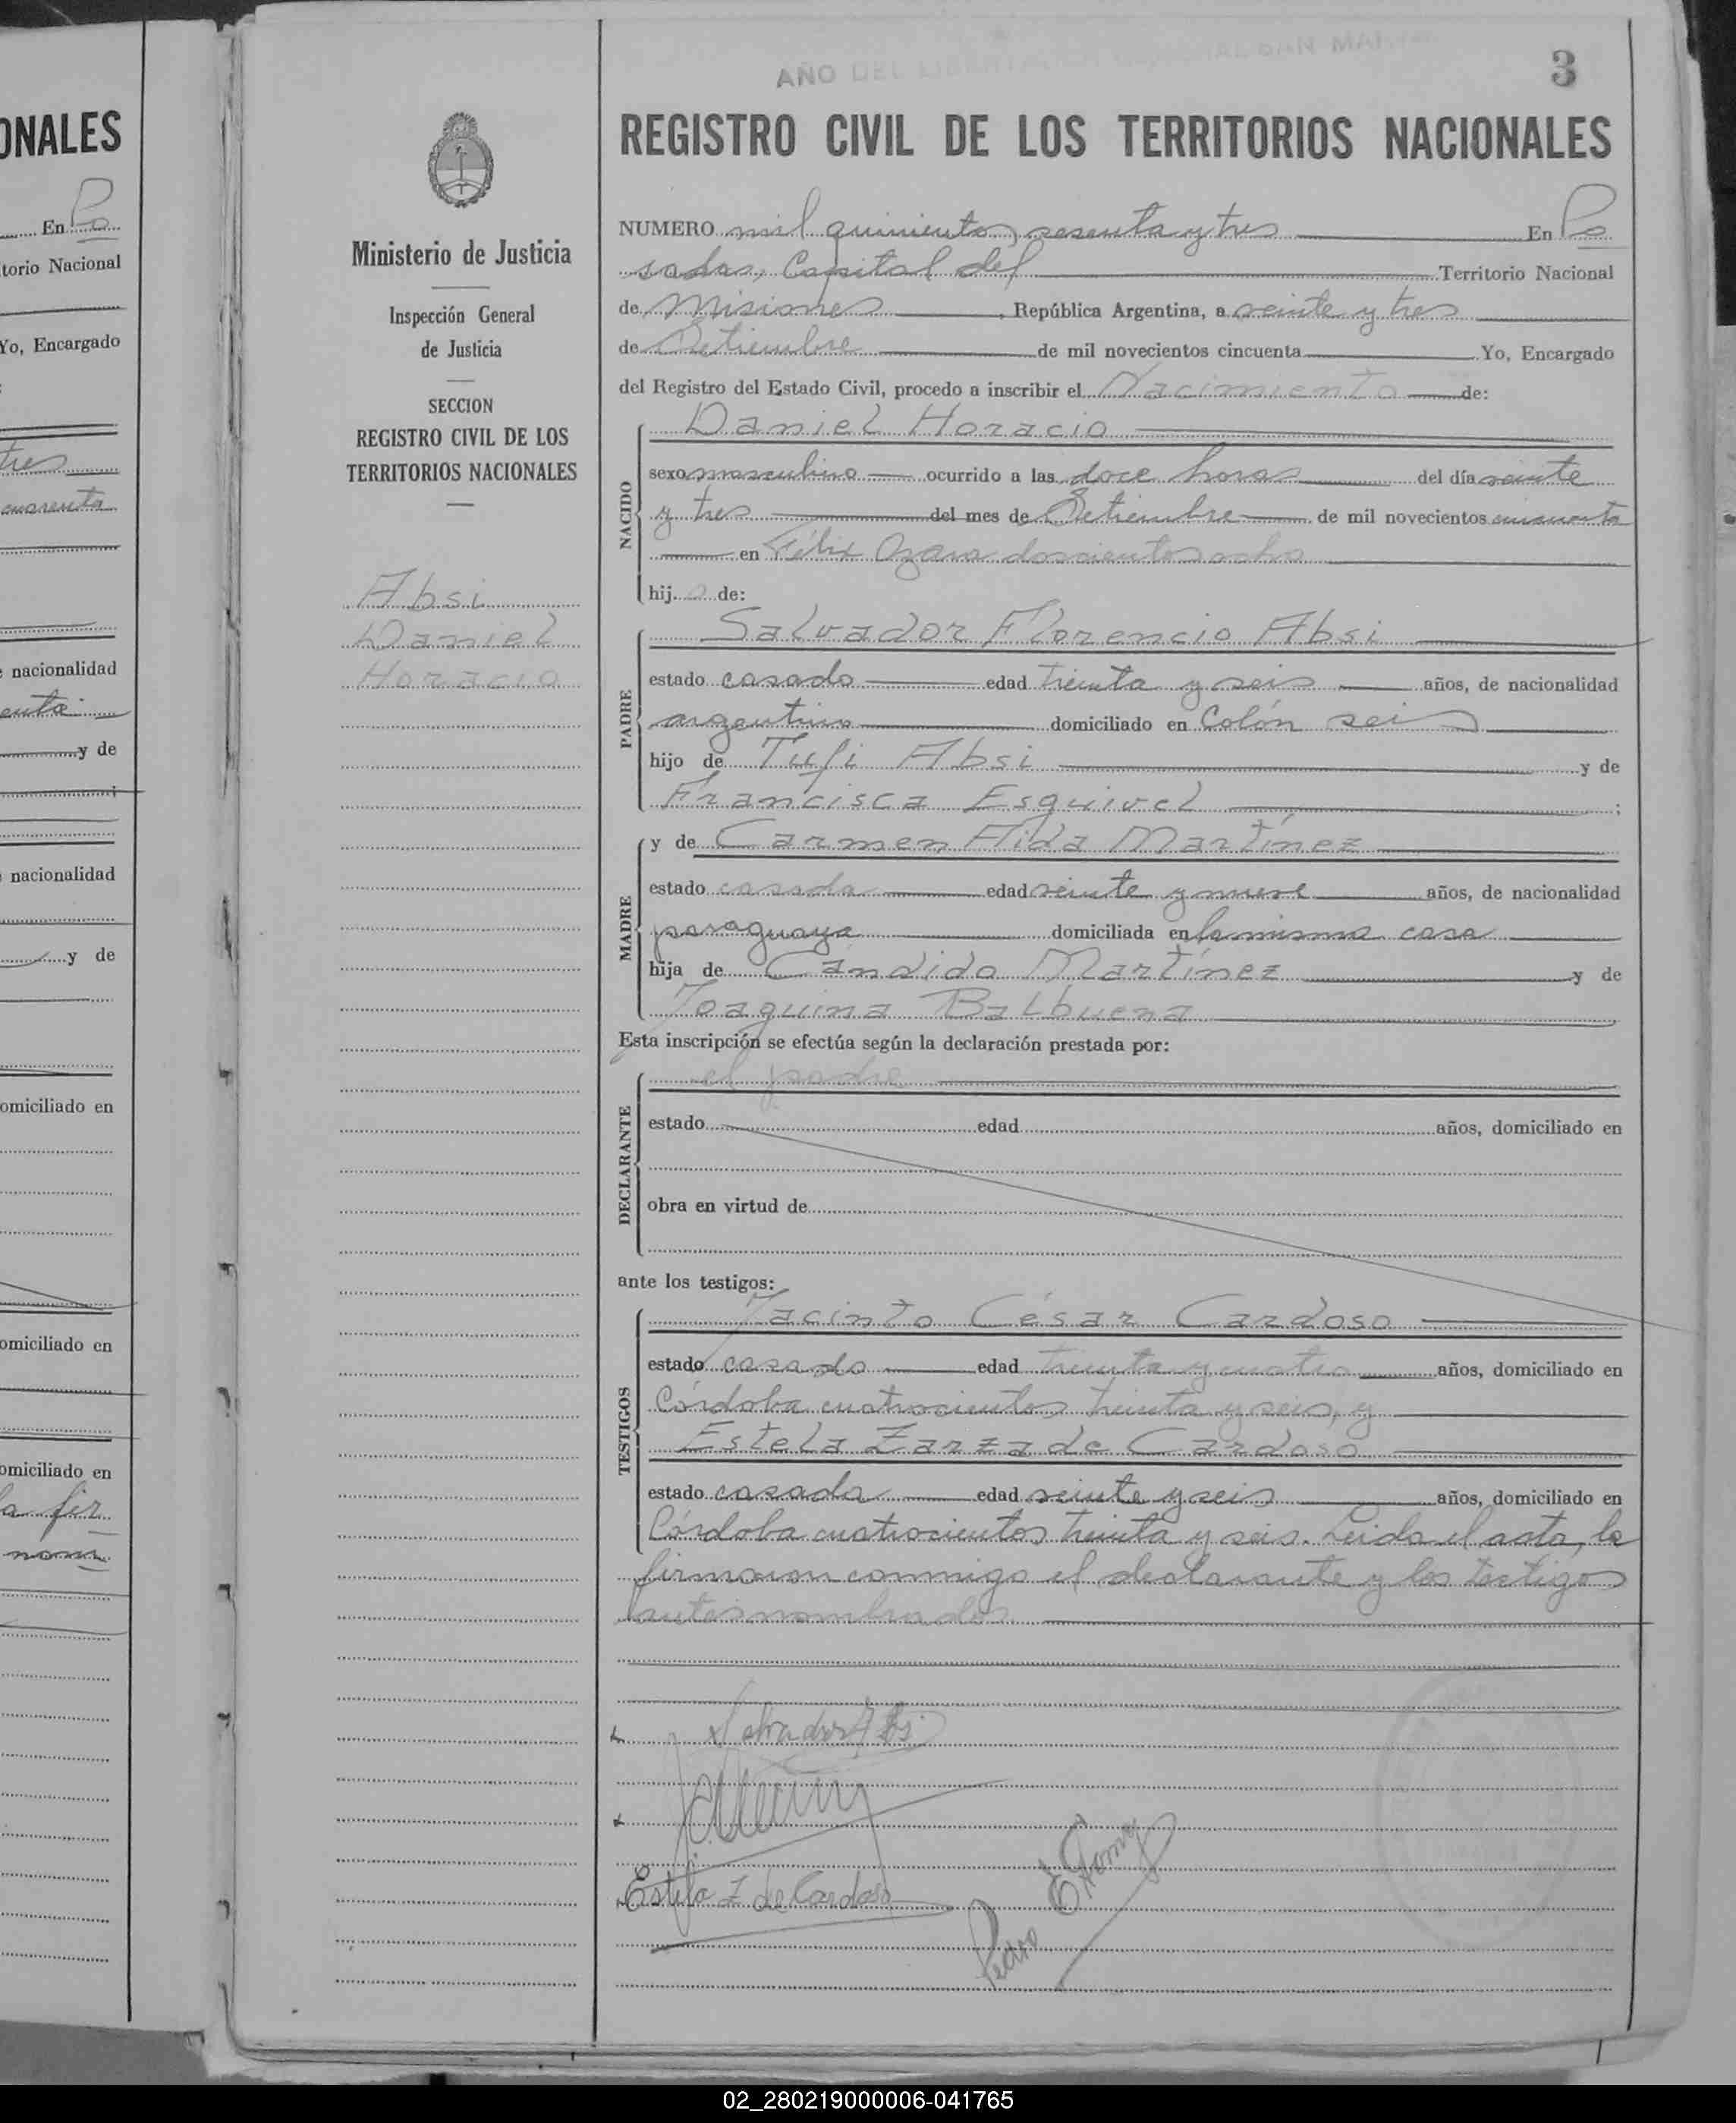 AÑO DEL LIBERTADOR GENERAL SAN MARTIN
3
REGISTRO CIVIL DE LOS TERRITORIOS NACIONALES
Ministerio de Justicia
Inspección General
de Justicia
SECCION
REGISTRO CIVIL DE LOS
TERRITORIOS NACIONALES
Absi
Daniel
Horacio
NUMERO mil quinientos sesenta y tres En Po
sadas, Capital del Territorio Nacional
de Misiones, República Argentina, a veinte y tres
de Setiembre de mil novecientos cincuenta Yo, Encargado
del Registro del Estado Civil, procedo a inscribir el Nacimiento de:
NACIDO
Daniel Horacio
sexo masculino ocurrido a las doce horas del día veinte
y tres del mes de Setiembre de mil novecientos cincuenta
en Félix Azara doscientos ocho
hij o de:
PADRE
Salvador Florencio Absi
estado casado edad treinta y seis años, de nacionalidad
argentino domiciliado en Colón seis
hijo de Tufi Absi y de
Francisca Esquivel ;
MADRE
y de Carmen Aida Martínez
estado casada edad veinte y nueve años, de nacionalidad
paraguaya domiciliada en la misma casa
hija de Cándido Martínez y de
Joaquina Balbuena
Esta inscripción se efectúa según la declaración prestada por:
DECLARANTE
el padre
estado edad años, domiciliado en
obra en virtud de
ante los testigos:
TESTIGOS
Jacinto César Cardoso
estado casado edad treinta y cuatro años, domiciliado en
Córdoba cuatrocientos treinta y seis, y
Estela Zarza de Cardoso
estado casada edad veinte y seis años, domiciliado en
Córdoba cuatrocientos treinta y seis. Leida el acta, la
firmaron conmigo el declarante y los testigos
antes nombrados.
Salvador F Absi
Estela Z de Cardoso
Pedro E Gomez
ONALES
En Po
torio Nacional
Yo, Encargado
tres
cuarenta
nacionalidad
enta
y de
nacionalidad
y de
omiciliado en
omiciliado en
omiciliado en
la fir
nom
02_280219000006-041765